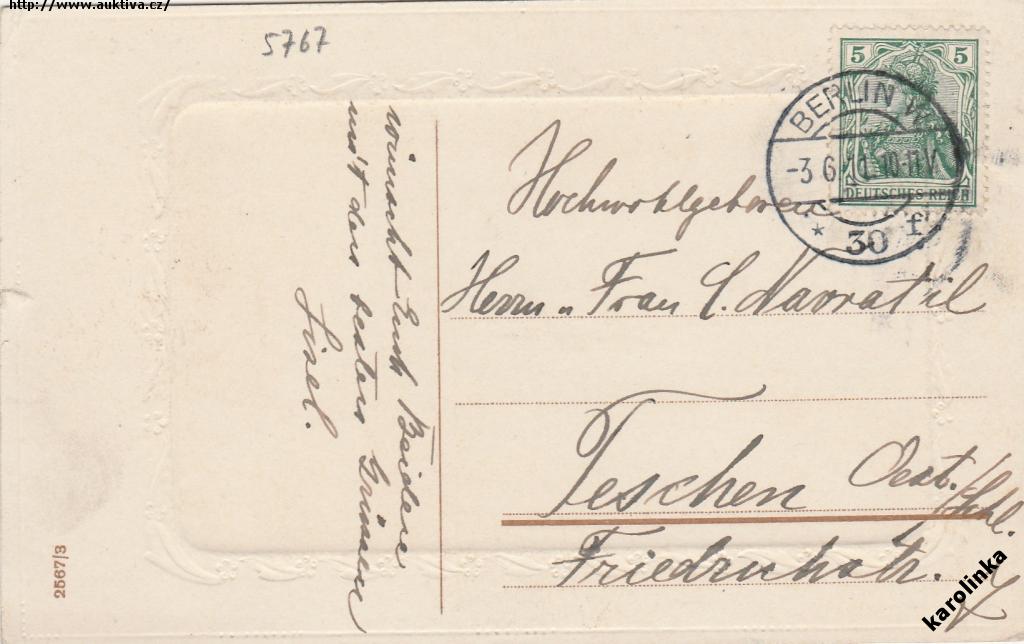 http://www.auktiva.cz/
5767
5 5
DEUTSCHES REICH
BERLIN W.
-3.6.11.10-11V
* 30 f.
wünscht Euch Beiden
mit den besten Grüssen
Lisel.
Hochwohlgeboren
Herrn u. Frau C. Navratil
Teschen
Oest./Schl.
Friedrichstr.
2567/3
karolinka